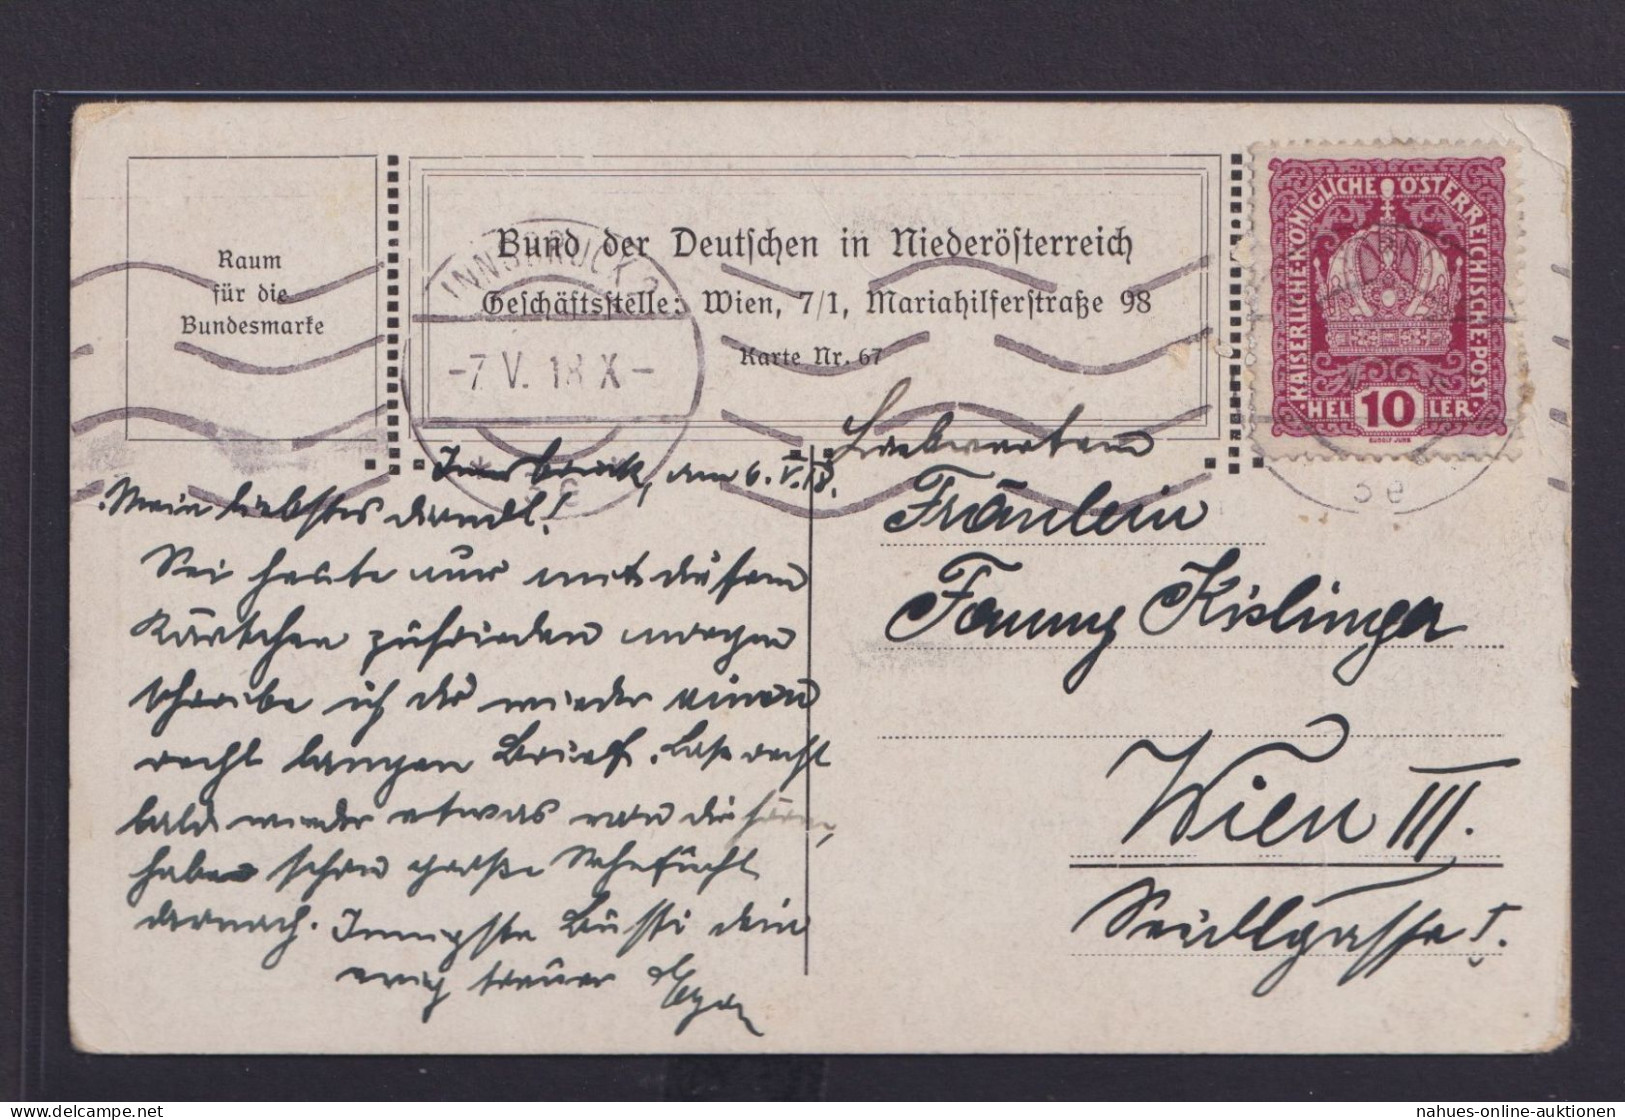 Raum
für die
Bundesmarke
Bund der Deutschen in Niederösterreich
Geschäftsstelle: Wien, 7/1, Mariahilferstraße 98
Karte Nr. 67
INNSBRUCK 2
-7. V. 18 X-
KAISERLICHE·KÖNIGLICHE ÖSTERREICHISCHE·POST
HELLER
10
Innsbruck, am 6. V. 18.
Mein liebstes Dirndl!
Sei heute nur mit diesem
Kärtchen zufrieden morgen
schreibe ich dir wieder einen
recht langen Brief. Lass recht
bald wieder etwas von dir hören,
habe schon große Sehnsucht
darnach. Innigste Bussi dein
ewig treuer
Fräulein
Fanny Kislinger
Wien III.
Seidlgasse
nahues-online-auktionen